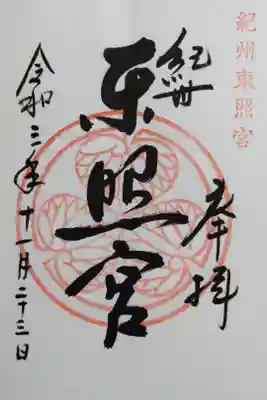 紀州東照宮
奉拝
紀州
東照宮
令和三年十一月二十三日